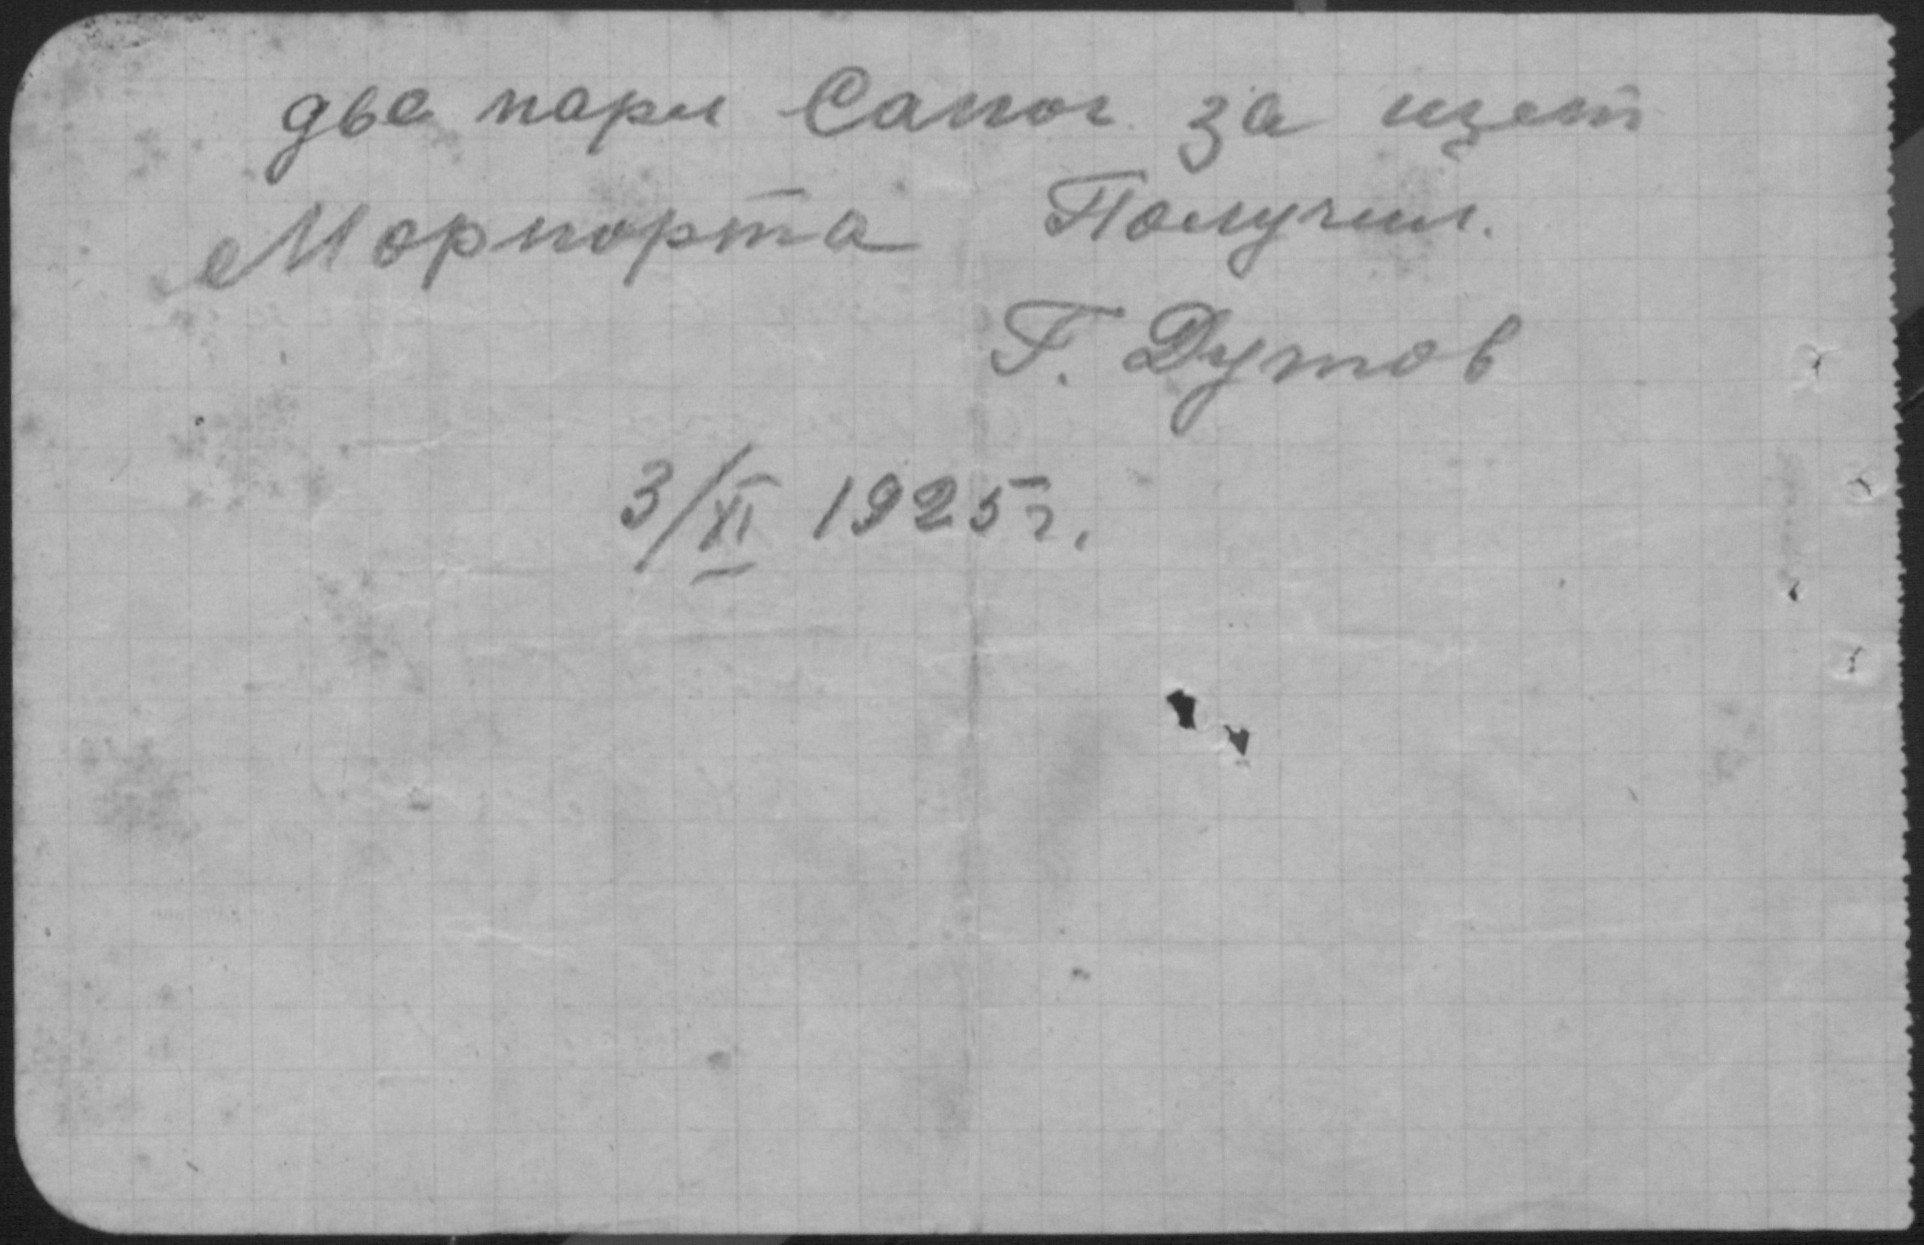 два пары Сапог за щет
Морпорта Получил.
Г. Дутов
3/XI 1925 г.